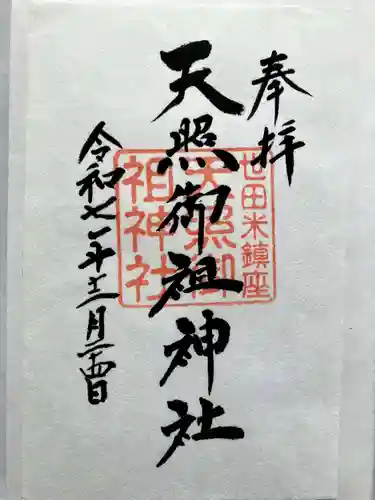 奉拝
天照御祖神社
世田米鎮座
天照御
祖神社
令和七年十二月二十四日